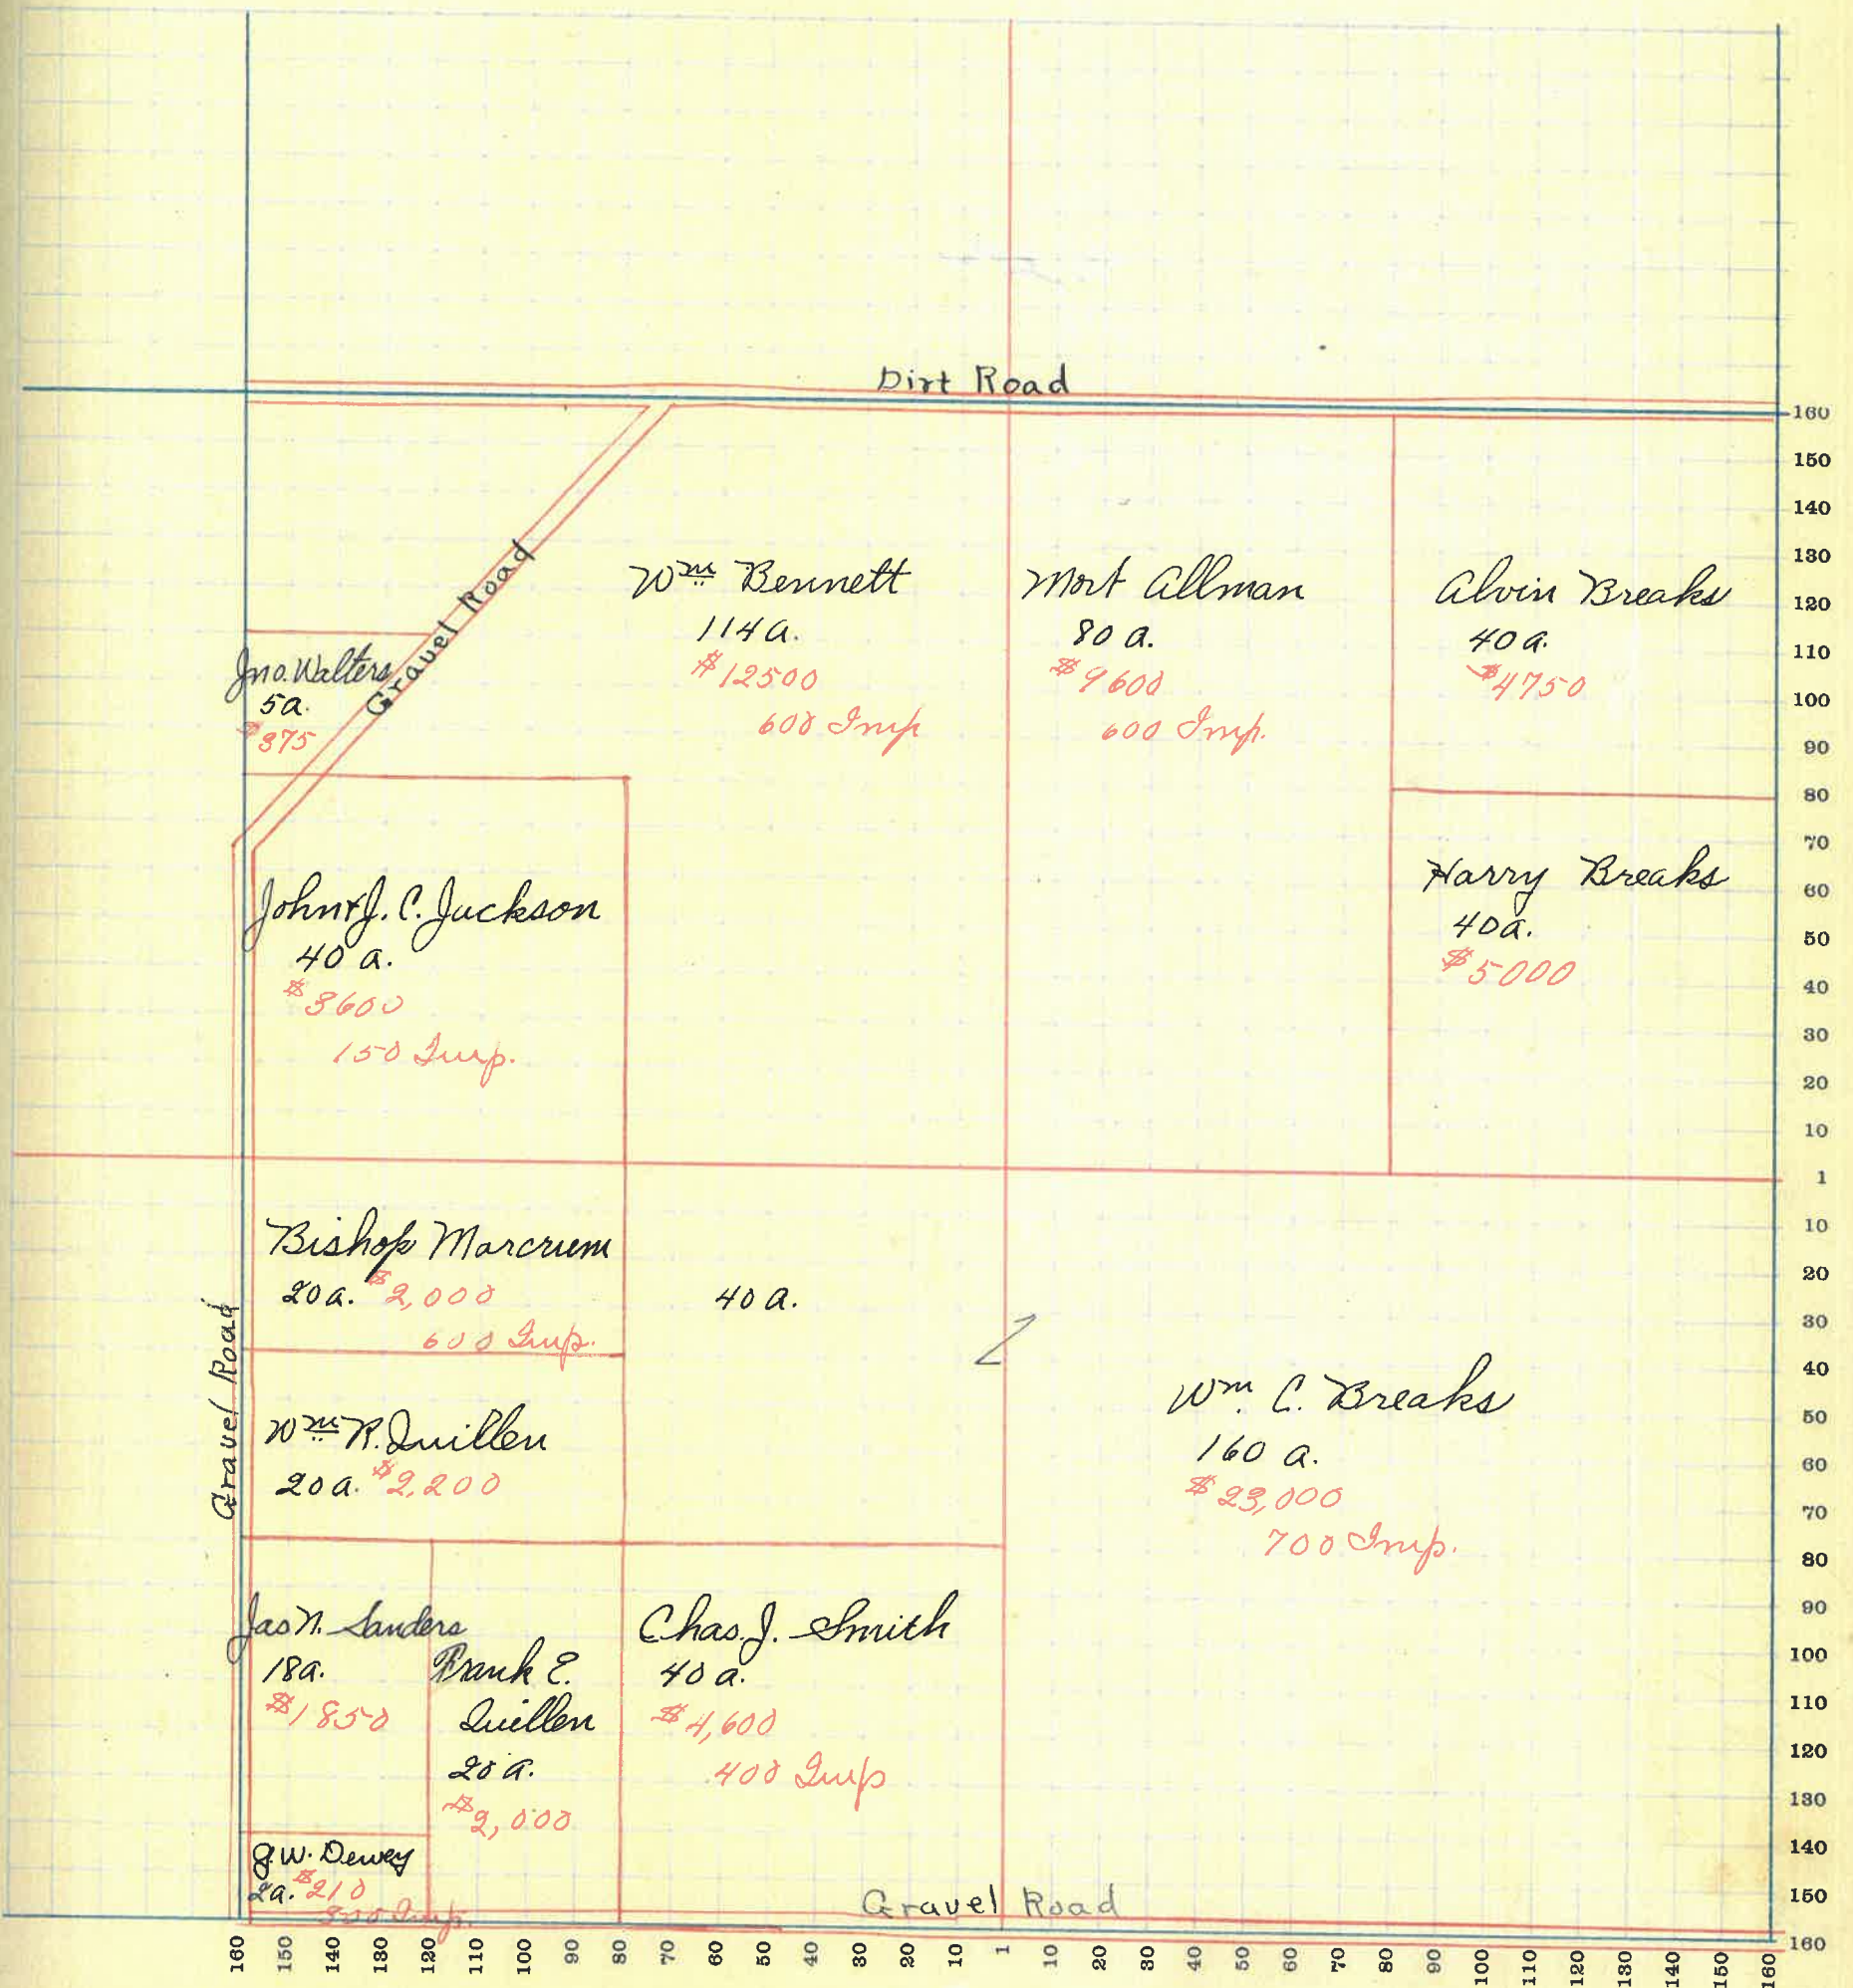 Dirt Road
Gravel Road
Wm Bennett
114 a.
$12500
600 Imp
Mort Allman
80 a.
$9600
600 Imp.
Alvin Breaks
40 a.
$4750
Jno. Walters
5a.
$375
John & J. C. Jackson
40 a.
$3600
150 Imp.
Harry Breaks
40a.
$5000
Bishop Marcrum
20a. $2,000
600 Imp.
40 a.
Gravel Road
Wm R. Quillen
20a. $2,200
Wm. C. Breaks
160 a.
$23,000
700 Imp.
Jas N. Sanders
18a.
$1850
Frank E.
Quillen
20 a.
$2,000
Chas. J. Smith
40 a.
$4,600
400 Imp
J.W. Dewey
2a. $210
Imp.
Gravel Road
160
150
140
130
120
110
100
90
80
70
60
50
40
30
20
10
1
10
20
30
40
50
60
70
80
90
100
110
120
130
140
150
160
160 150 140 130 120 110 100 90 80 70 60 50 40 30 20 10 1 10 20 30 40 50 60 70 80 90 100 110 120 130 140 150 160